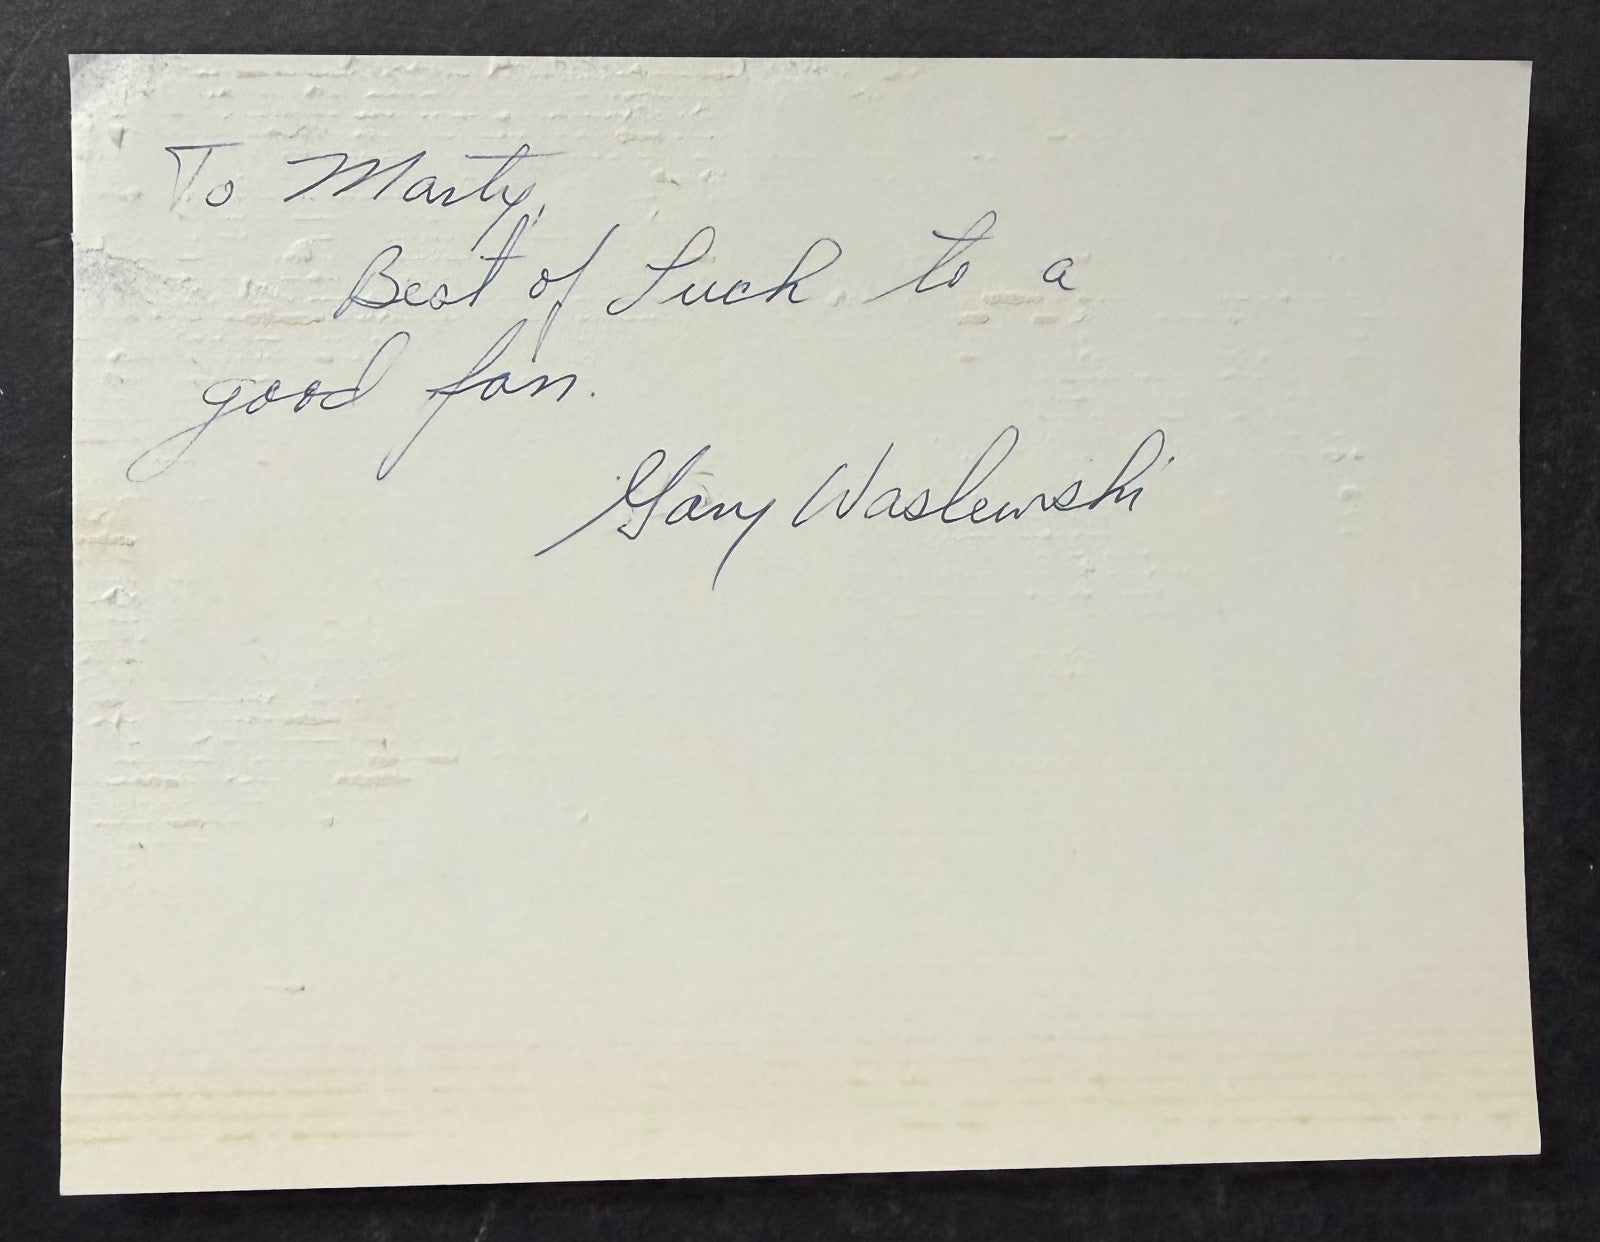 To Marty,
Best of Luck to a
good fan.
Gary Waslewski